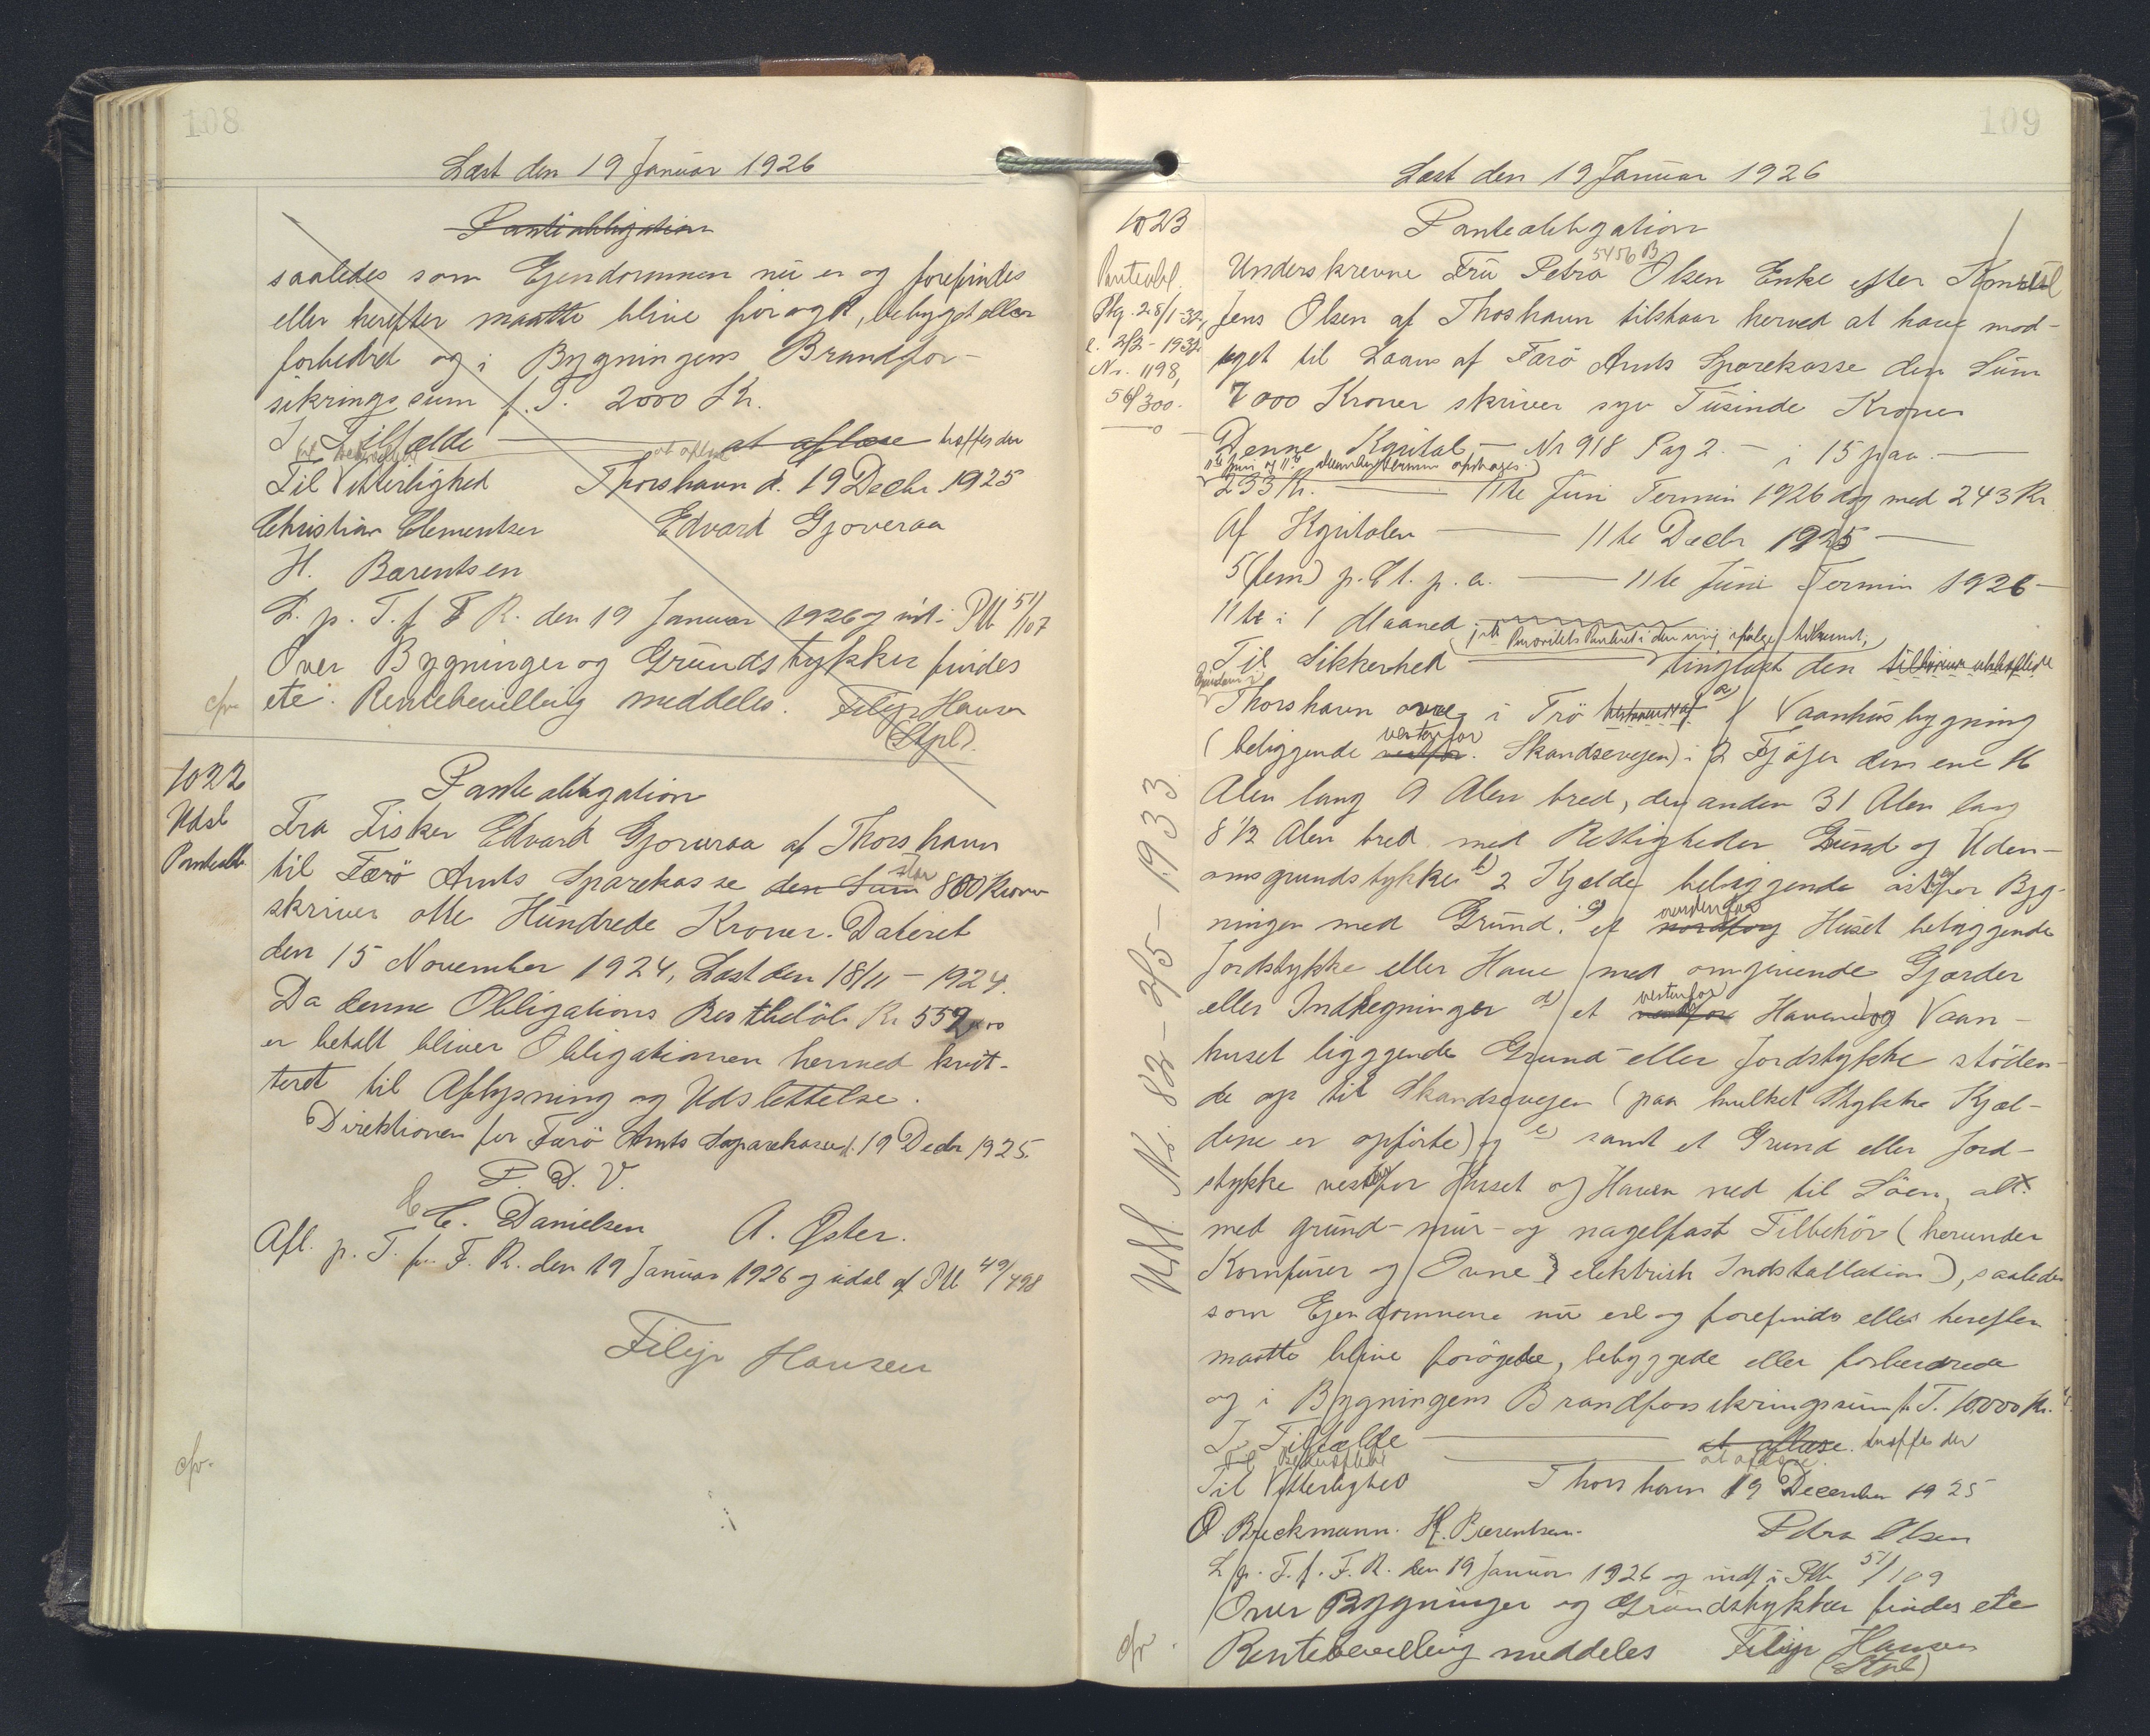 108
Læst den 19 Januar 1926
Panteobligation
saaledes som Ejendommen nu er og forefindes
eller herefter maatte blive forøget, bebygget eller
forbedret og i Bygningens Brandfor-
sikringssum p. T. 2000 Kr.
I Tilfælde at aflæse træffes der
Til Vitterlighed Thorshavn d. 19 Decbr. 1925
Christian Clementsen Edvard Gjoveraa
H. Barentsen
L. p. T. f. F. R. den 19 Januar 1926 og indf. i PM 51/107
Over Bygninger og Grundstykker findes
etc. Rentebevilling meddeles. Filip Hansen
(Stpl).
cfr.
1022
Udsl
Panteobl.
Panteobligation
Fra Fisker Edvard Gjoveraa af Thorshavn
til Færö Amts Sparekasse den Sum stor 800 Kroner
skriver otte Hundrede Kroner. Dateret
den 15 November 1924, Læst den 18/11 - 1924.
Da denne Obligations Restbelöb Kr 559,00
er betalt bliver Obligationen hermed kvit-
teret til Aflysning og Udslettelse.
Direktionen for Færö Amts Sparekasse d. 19 Decbr 1925.
P. D. V.
C. Danielsen A. Øster.
Afl. p. T. f. F. R. den 19 Januar 1926 og udsl af PM 49/498
Filip Hansen
cfr.
109
Læst den 19 Januar 1926
1023
Panteobl.
Pkg. 28/1-32,
l. 2/2-1932
Nr. 1198,
56/300.
Panteobligation
5456 B
Underskrevne Fru Petra Olsen Enke efter Konsul
Jens Olsen af Thorshavn tilstaar herved at have mod-
taget til Laans af Færö Amts Sparekasse den Sum
7000 Kroner skriver syv Tusinde Kroner
Denne Kapital - Nr 918 Pag 2 - i 15 paa
11te Juni og 11te December Termin opsiges
233 Kr. 11te Juni Termin 1926 dog med 243 Kr
Af Kapitalen 11te Decbr 1925
5 (fem) p. Ct. p. a. 11te Juni Termin 1926 -
11te i 1 Maaned
1ste Prioritets Panteret i den mig ifølge tilkomst,
Til Sikkerhed tinglæst den
Thorshavn i Trö a) 1 Vaanhusbygning
(beliggende vestenfor Skandsevejen) i 2 Fjøjer den ene 16
Alen lang 9 Alen bred, den anden 31 Alen lang
8 1/2 Alen bred med Rettigheder Grund og Uden-
omsgrundstykke b) 2 Kjælde beliggende østfor Byg-
ningen med Grund. c) et nordfor Huset beliggende
Jordstykke eller Have med omgivende Gjærder
eller Indhegninger d) et vestenfor Haven og Vaan-
huset liggende Grund eller Jordstykke stöden-
de op til Skandsevejen (paa hvilket Stykke Kjæl-
dene er opførte) og e) samt et Grund eller Jord-
stykke vestfor Huset og Haven ned til Söen, alt
med grund- mur- og nagelfast Tilbehör (herunder
Komfurer og Ovne elektrisk Indstallation), saaledes
som Ejendommene nu ere og forefindes eller herefter
maatte blive forögede, bebyggede eller forbedrede
og i Bygningens Brandforsikringssum p. T. 10.000 Kr.
I Tilfælde at aflæse træffes der
Til Vitterlighed Thorshavn 19 December 1925
O Breckmann. H. Barentsen. Petra Olsen
L. p. T. f. F. R. den 19 Januar 1926 og indf. i PM 51/109
Over Bygninger og Grundstykker findes etc
Rentebevilling meddeles Filip Hansen
(Stpl)
cfr.
Udsl No. 82 - 2/5 - 1933